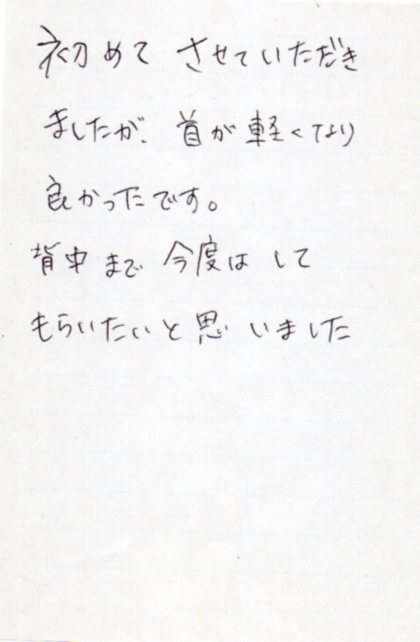 初めて させていただき
ましたが、首が軽くなり
良かったです。
背中まで 今度は して
もらいたいと思いました